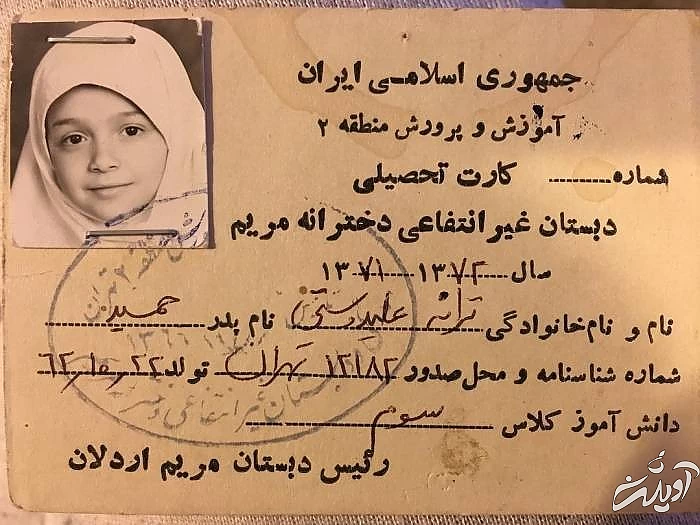 جمهوری اسلامی ایران
آموزش و پرورش منطقه ۲
شماره .......... کارت تحصیلی
دبستان غیر انتفاعی دخترانه مریم
سال ۱۳۷۲-۱۳۷۱
نام و نام‌خانوادگی ترانه علیدوستی نام پدر حمید
شماره شناسنامه و محل صدور ۱۲۱۸۲ تهران تولد ۶۲,۱۰,۲۲
دانش آموز کلاس سوم
رئیس دبستان مریم اردلان
آویلت